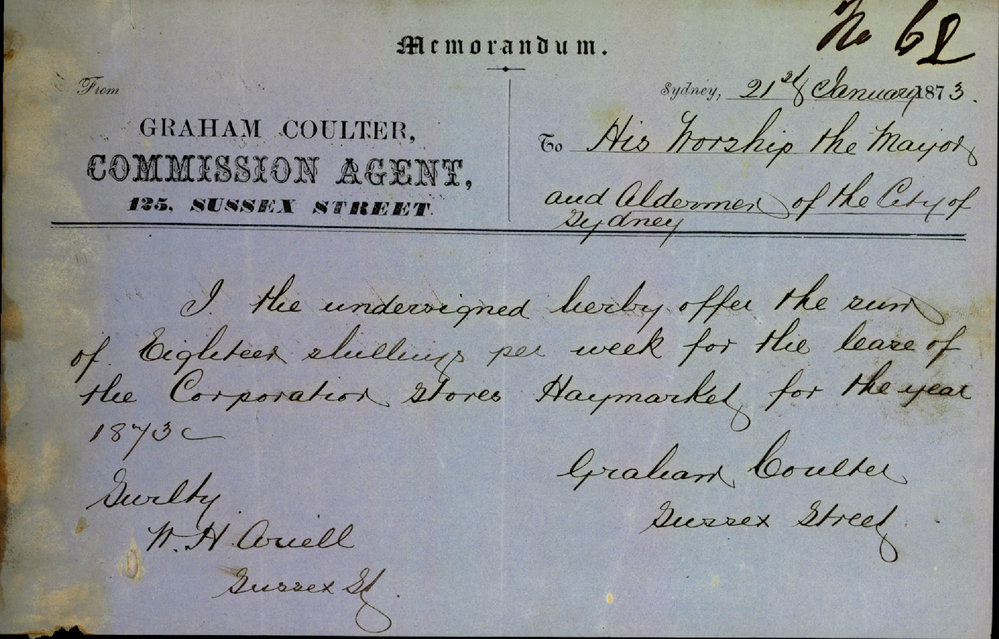 No 62
Memorandum.
From
Sydney, 21st January 1873.
GRAHAM COULTER,
COMMISSION AGENT,
125, SUSSEX STREET.
To His Worship the Mayor
and Aldermen of the City of
Sydney
I the undersigned herby offer the sum
of Eighteen shillings per week for the lease of
the Corporation Stores Haymarket for the year
1873
Graham Coulter
Sussex Street
Surity
W. H. Ariell
Sussex St